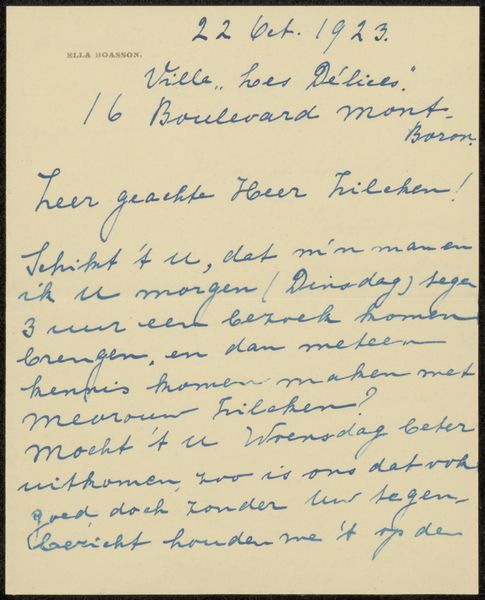 22 Oct. 1923.
ELLA BOASSON.
Villa „Les Délices".
16 Boulevard Mont-
Boron.
Zeer geachte Heer Zilcken!
Schikt 't U, dat m'n man en
ik U morgen (Dinsdag) tegen
3 uur een bezoek komen
brengen, en dan meteen
kennis komen maken met
Mevrouw Zilcken?
Mocht 't U Woensdag beter
uitkomen, zoo is ons dat ook
goed doch zonder Uw tegen-
bericht houden we 't op den